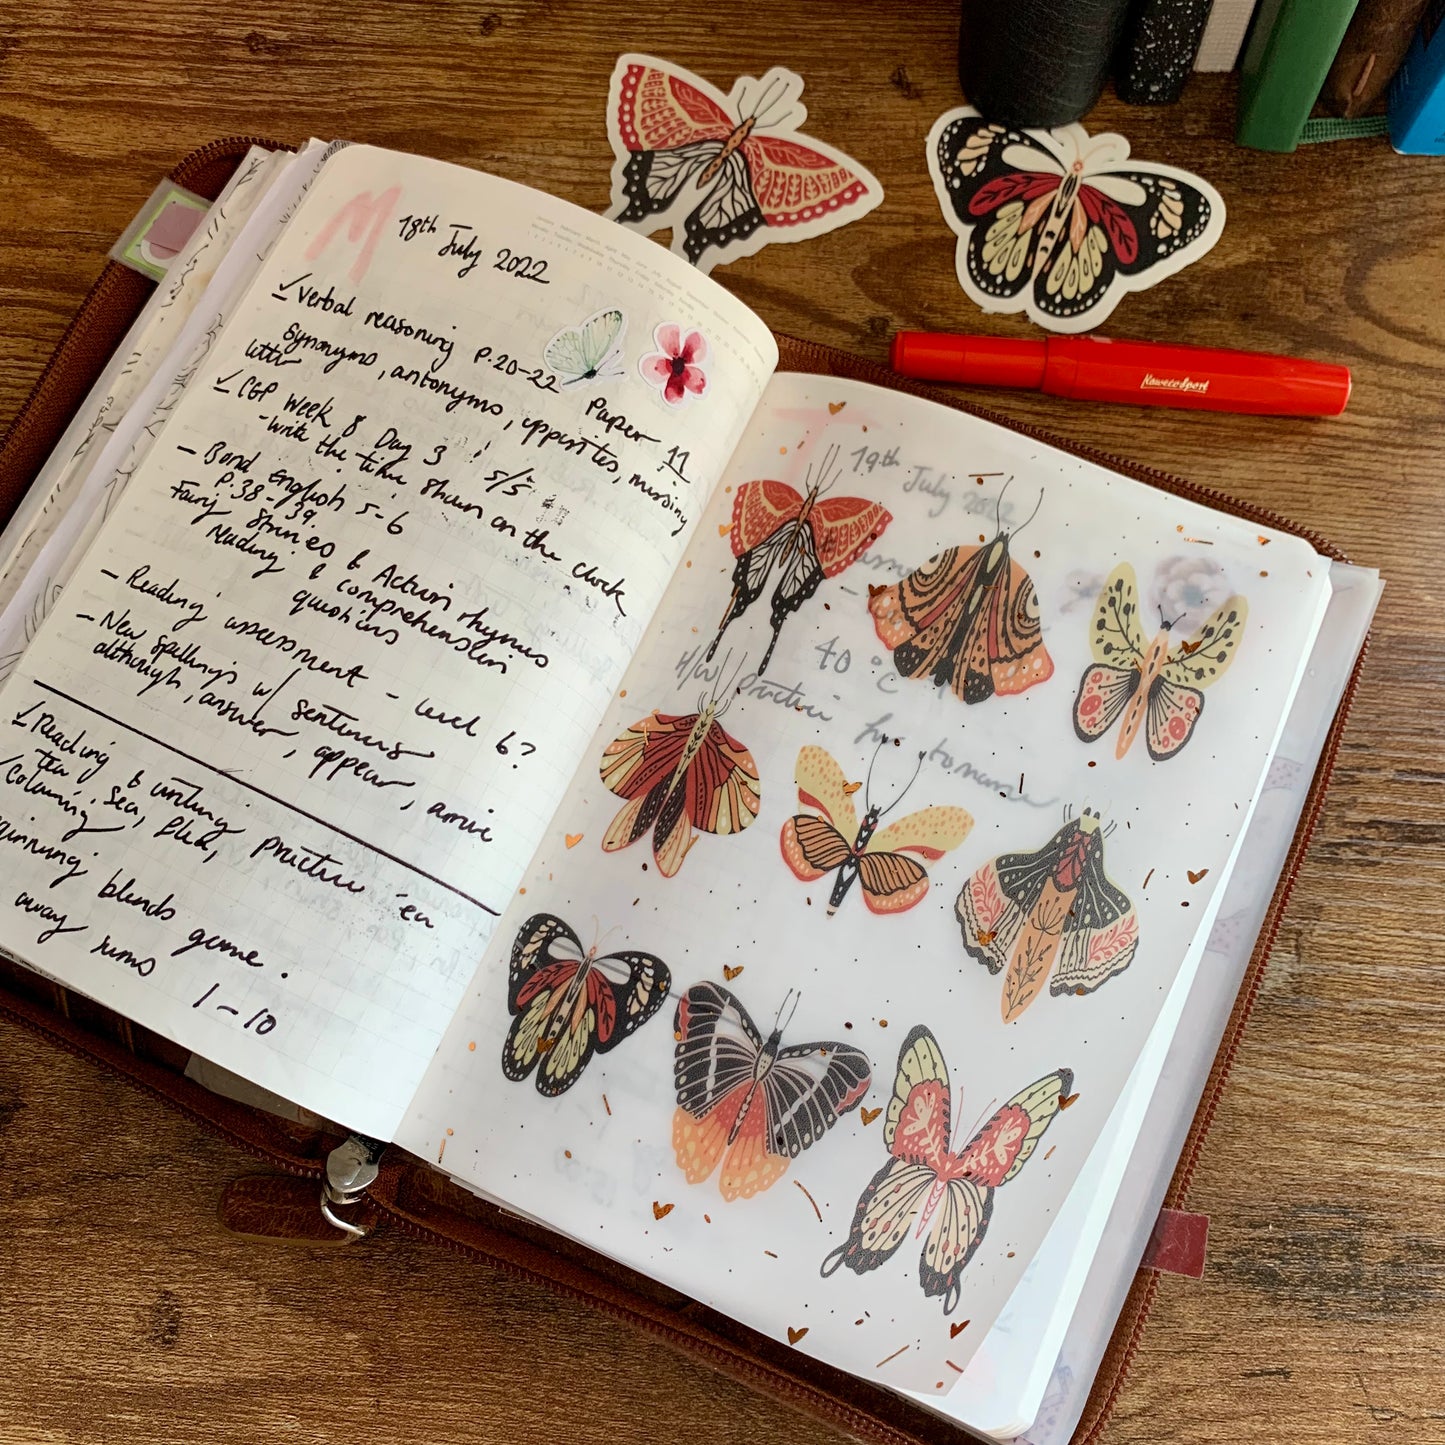 M
18th July 2022
✓ Verbal reasoning P.20-22 Paper 11
Synonyms, antonyms, opposites, missing
letter
✓ CGP Week 8 Day 3 : 5/5
- Write the time shown on the clock
- Bond English 5-6
P.38-39.
Fairy Stories & Action rhymes
Reading & comprehension
questions
- Reading assessment - level 6?
- New spellings w/ sentences
although, answer, appear, arrive
✓ Reading & writing practice 'ea
tea, sea, plea,
Colouring
beginning blends game.
away sums 1-10
Kaweco Sport
T
19th July 2022
40°C
H/W practice for tomorrow